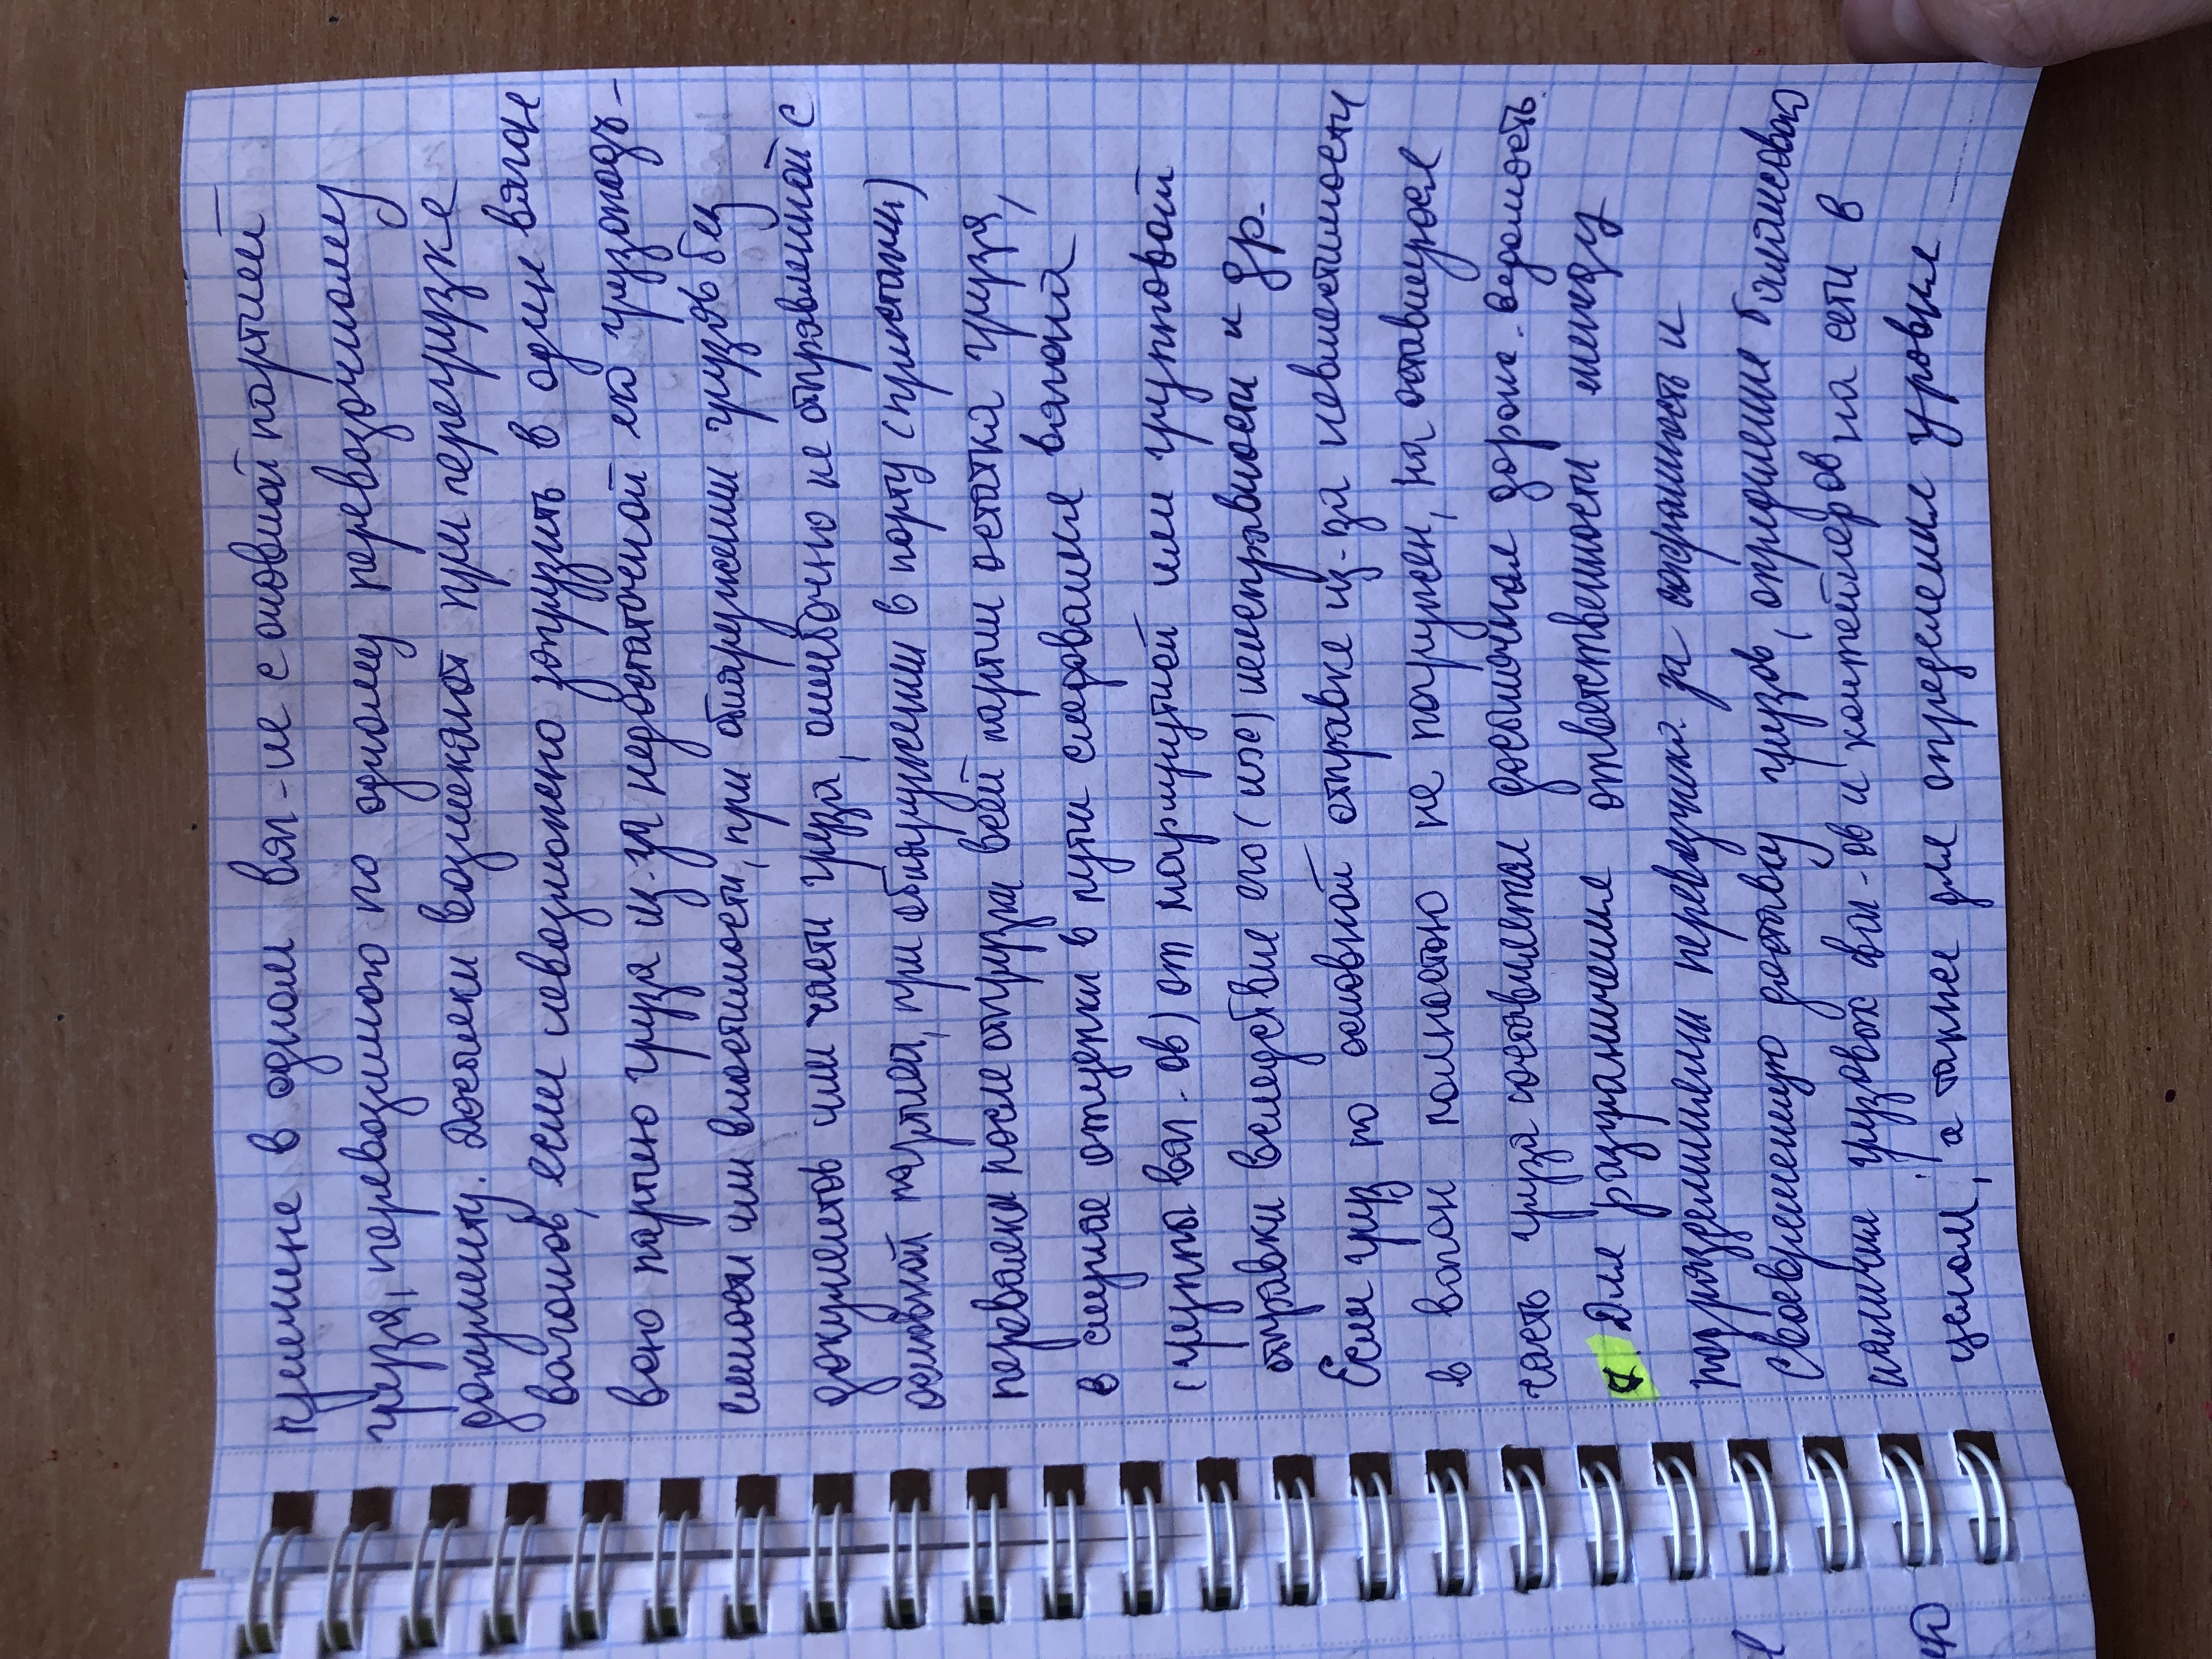 ценшне в одном ваг-не с основной партией
груза, перевозимого по одному перевозочному
документу. Досылки возникают при перегрузке
вагонов, если невозможно загрузить в один вагон
всю партию груза из-за недостаточной его грузоподъ-
емности или вместимости, при обнаружении грузов без
документов или части груза, ошибочно не отправленной с
основной партией, при обнаружении в порту (пристани)
перевалки после отгрузки всей партии остатка груза,
в случае отцепки в пути следования вагона
(группы ваг-ов) от маршрутной или групповой
отправки вследствие его (их) неисправности и др.
Если груз по основной отправке из-за невместимости
в вагон полностью не погружен, на оставшуюся
часть груза составляется досылочная дорож. ведомость.
Для разграничения ответственности между
подразделениями перевозчика за сохранность и
своевременную доставку грузов, определение балансового
наличия грузовых ваг-ов и контейнеров на сети в
целом, а также для определения уровня